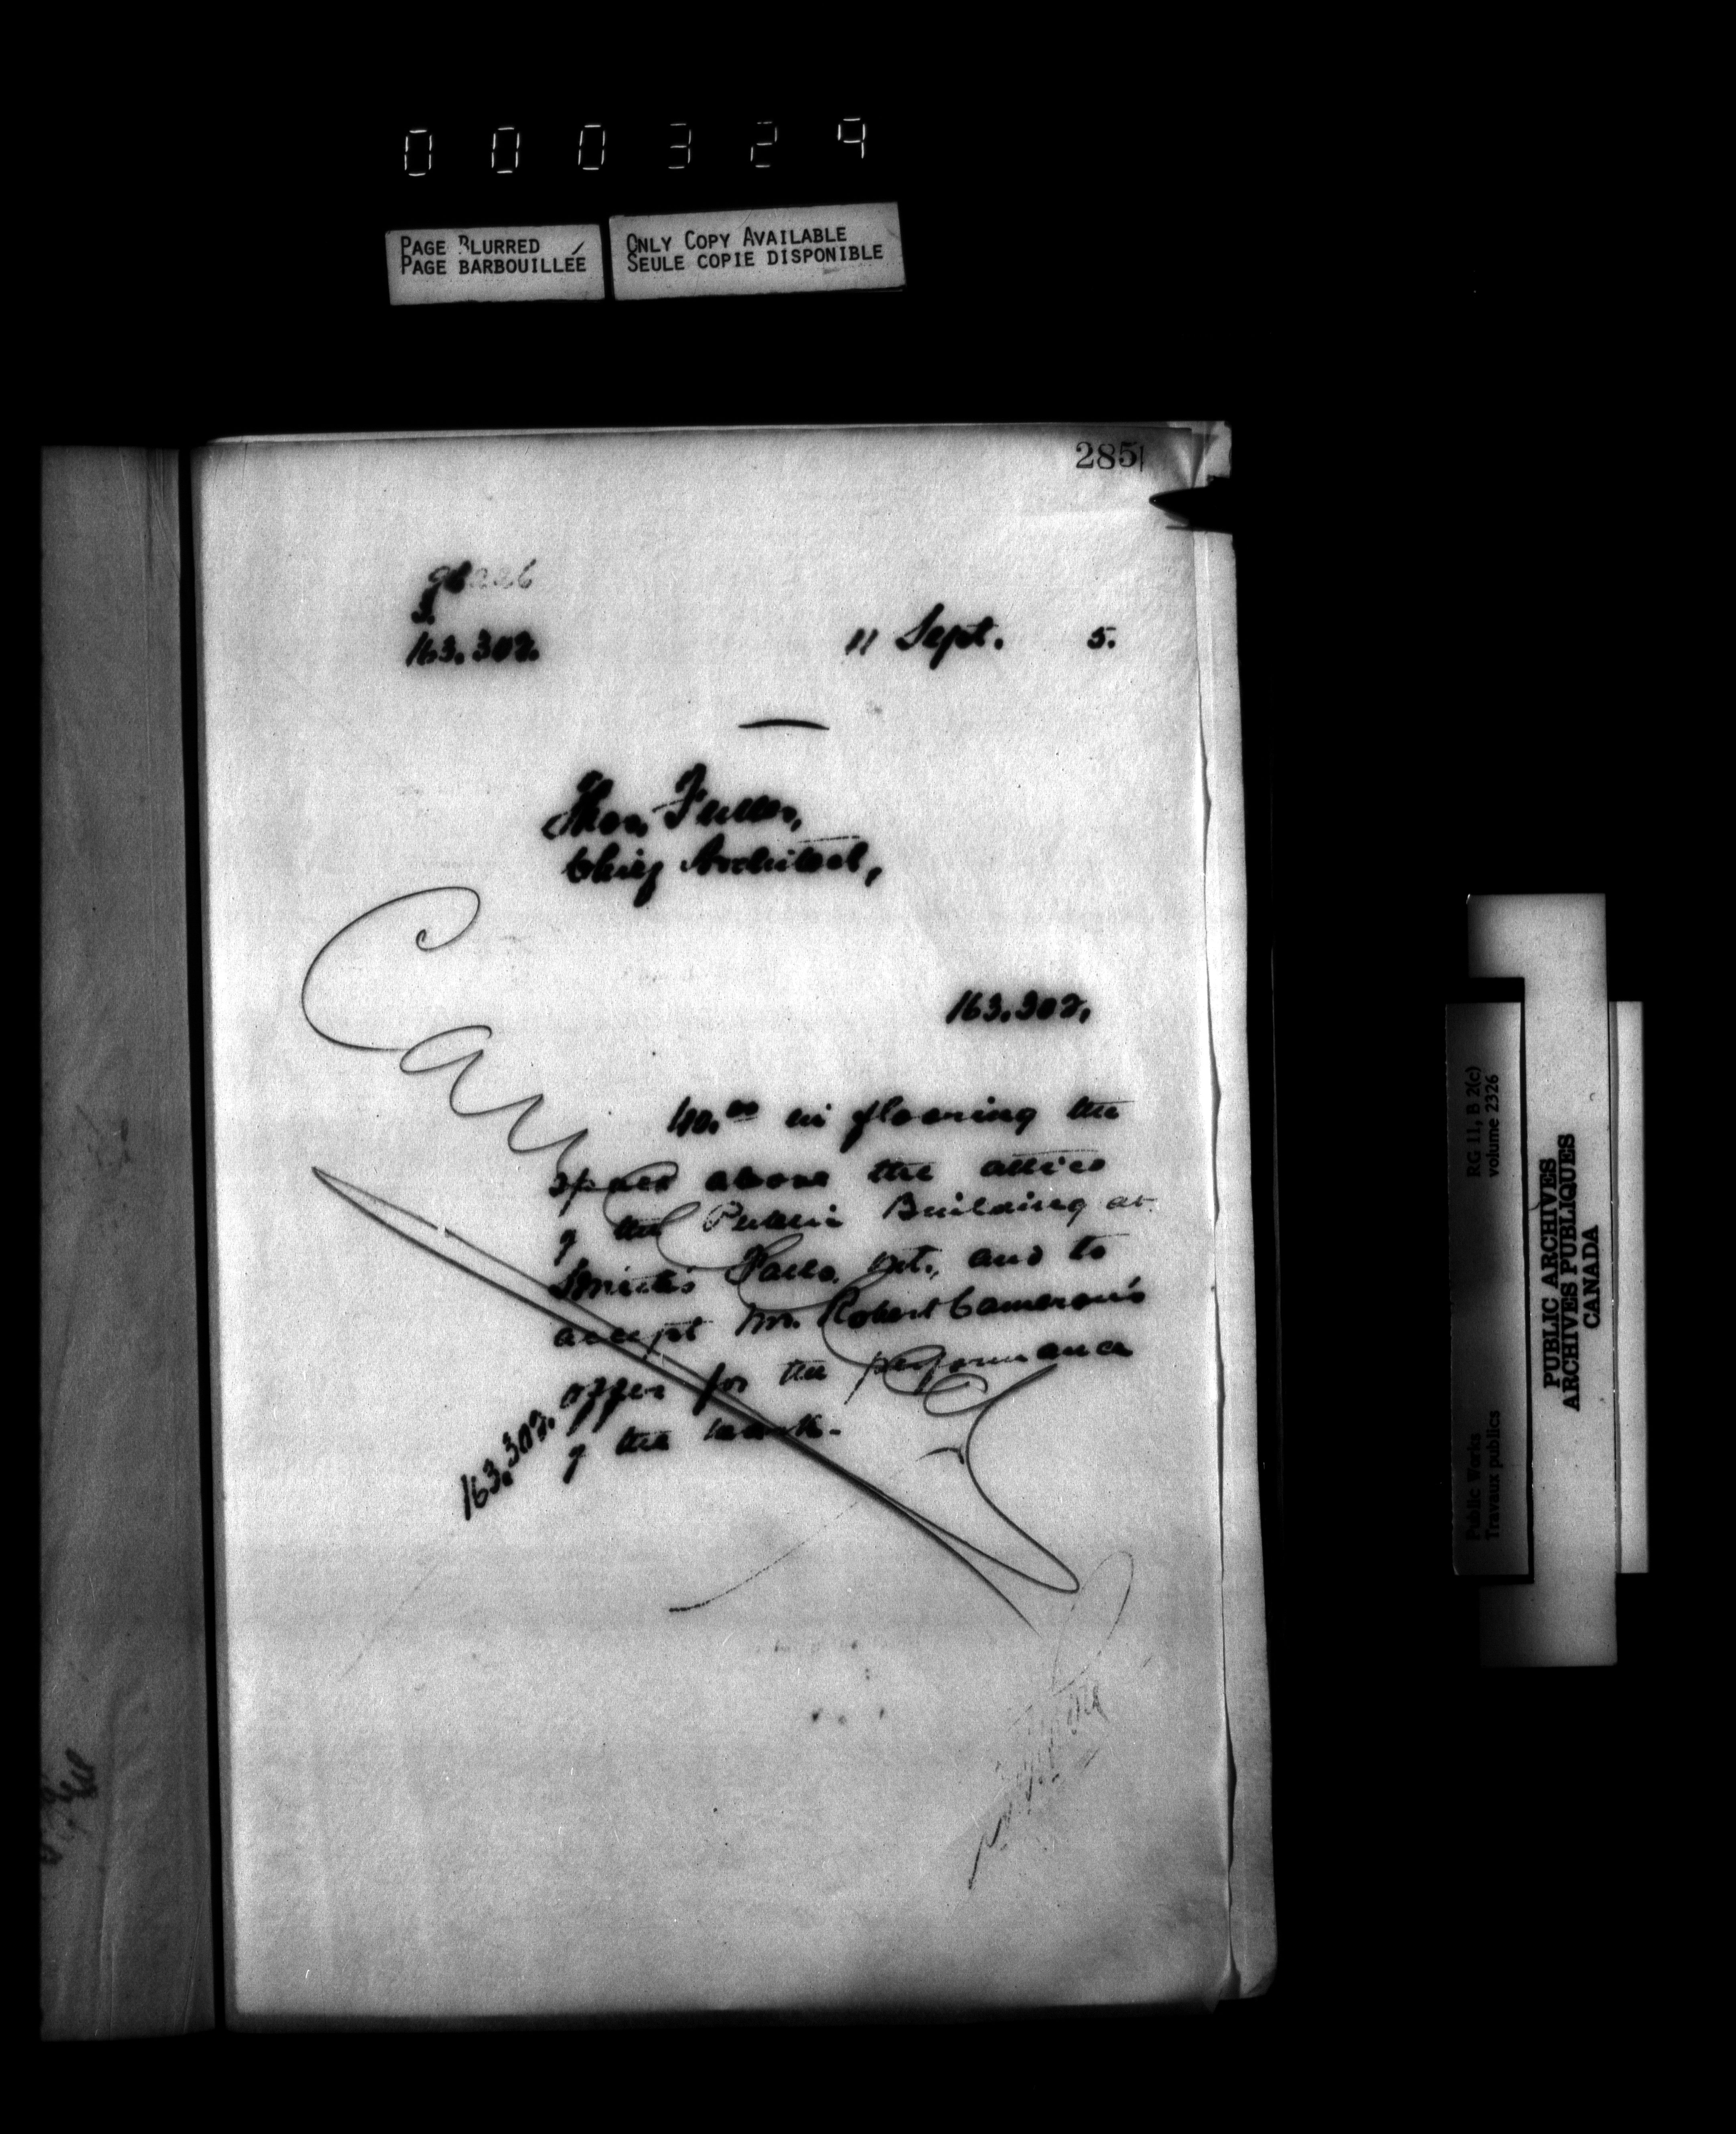 000329
PAGE BLURRED
PAGE BARBOUILLÉE
ONLY COPY AVAILABLE
SEULE COPIE DISPONIBLE
285
163.302.
11 Sept. 5.
Thos. Fuller,
Chief Architect,
163.302.
in flooring the
space above the attics
of the Public Building at
Smith's Falls, Ont., and to
accept Mr. Robert Cameron's
offer for the performance
of the work.
163.302.
Cancelled
RG 11, B 2(c)
volume 2326
Public Works
Travaux publics
PUBLIC ARCHIVES
ARCHIVES PUBLIQUES
CANADA